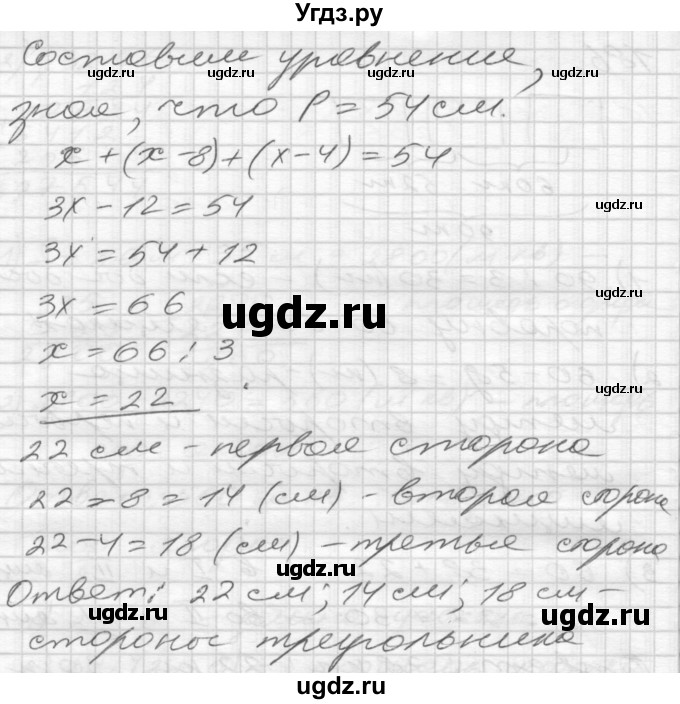 Угдз.ру
Составим уравнение,
зная, что P = 54 см.
x + (x - 8) + (x - 4) = 54
3x - 12 = 54
3x = 54 + 12
3x = 66
x = 66 : 3
x = 22
22 см - первая сторона
22 - 8 = 14 (см) - вторая сторона
22 - 4 = 18 (см) - третья сторона
Ответ: 22 см; 14 см; 18 см -
стороны треугольника
ugdz.ru
ugdz.ru
ugdz.ru
ugdz.ru
ugdz.ru
ugdz.ru
ugdz.ru
ugdz.ru
ugdz.ru
ugdz.ru
ugdz.ru